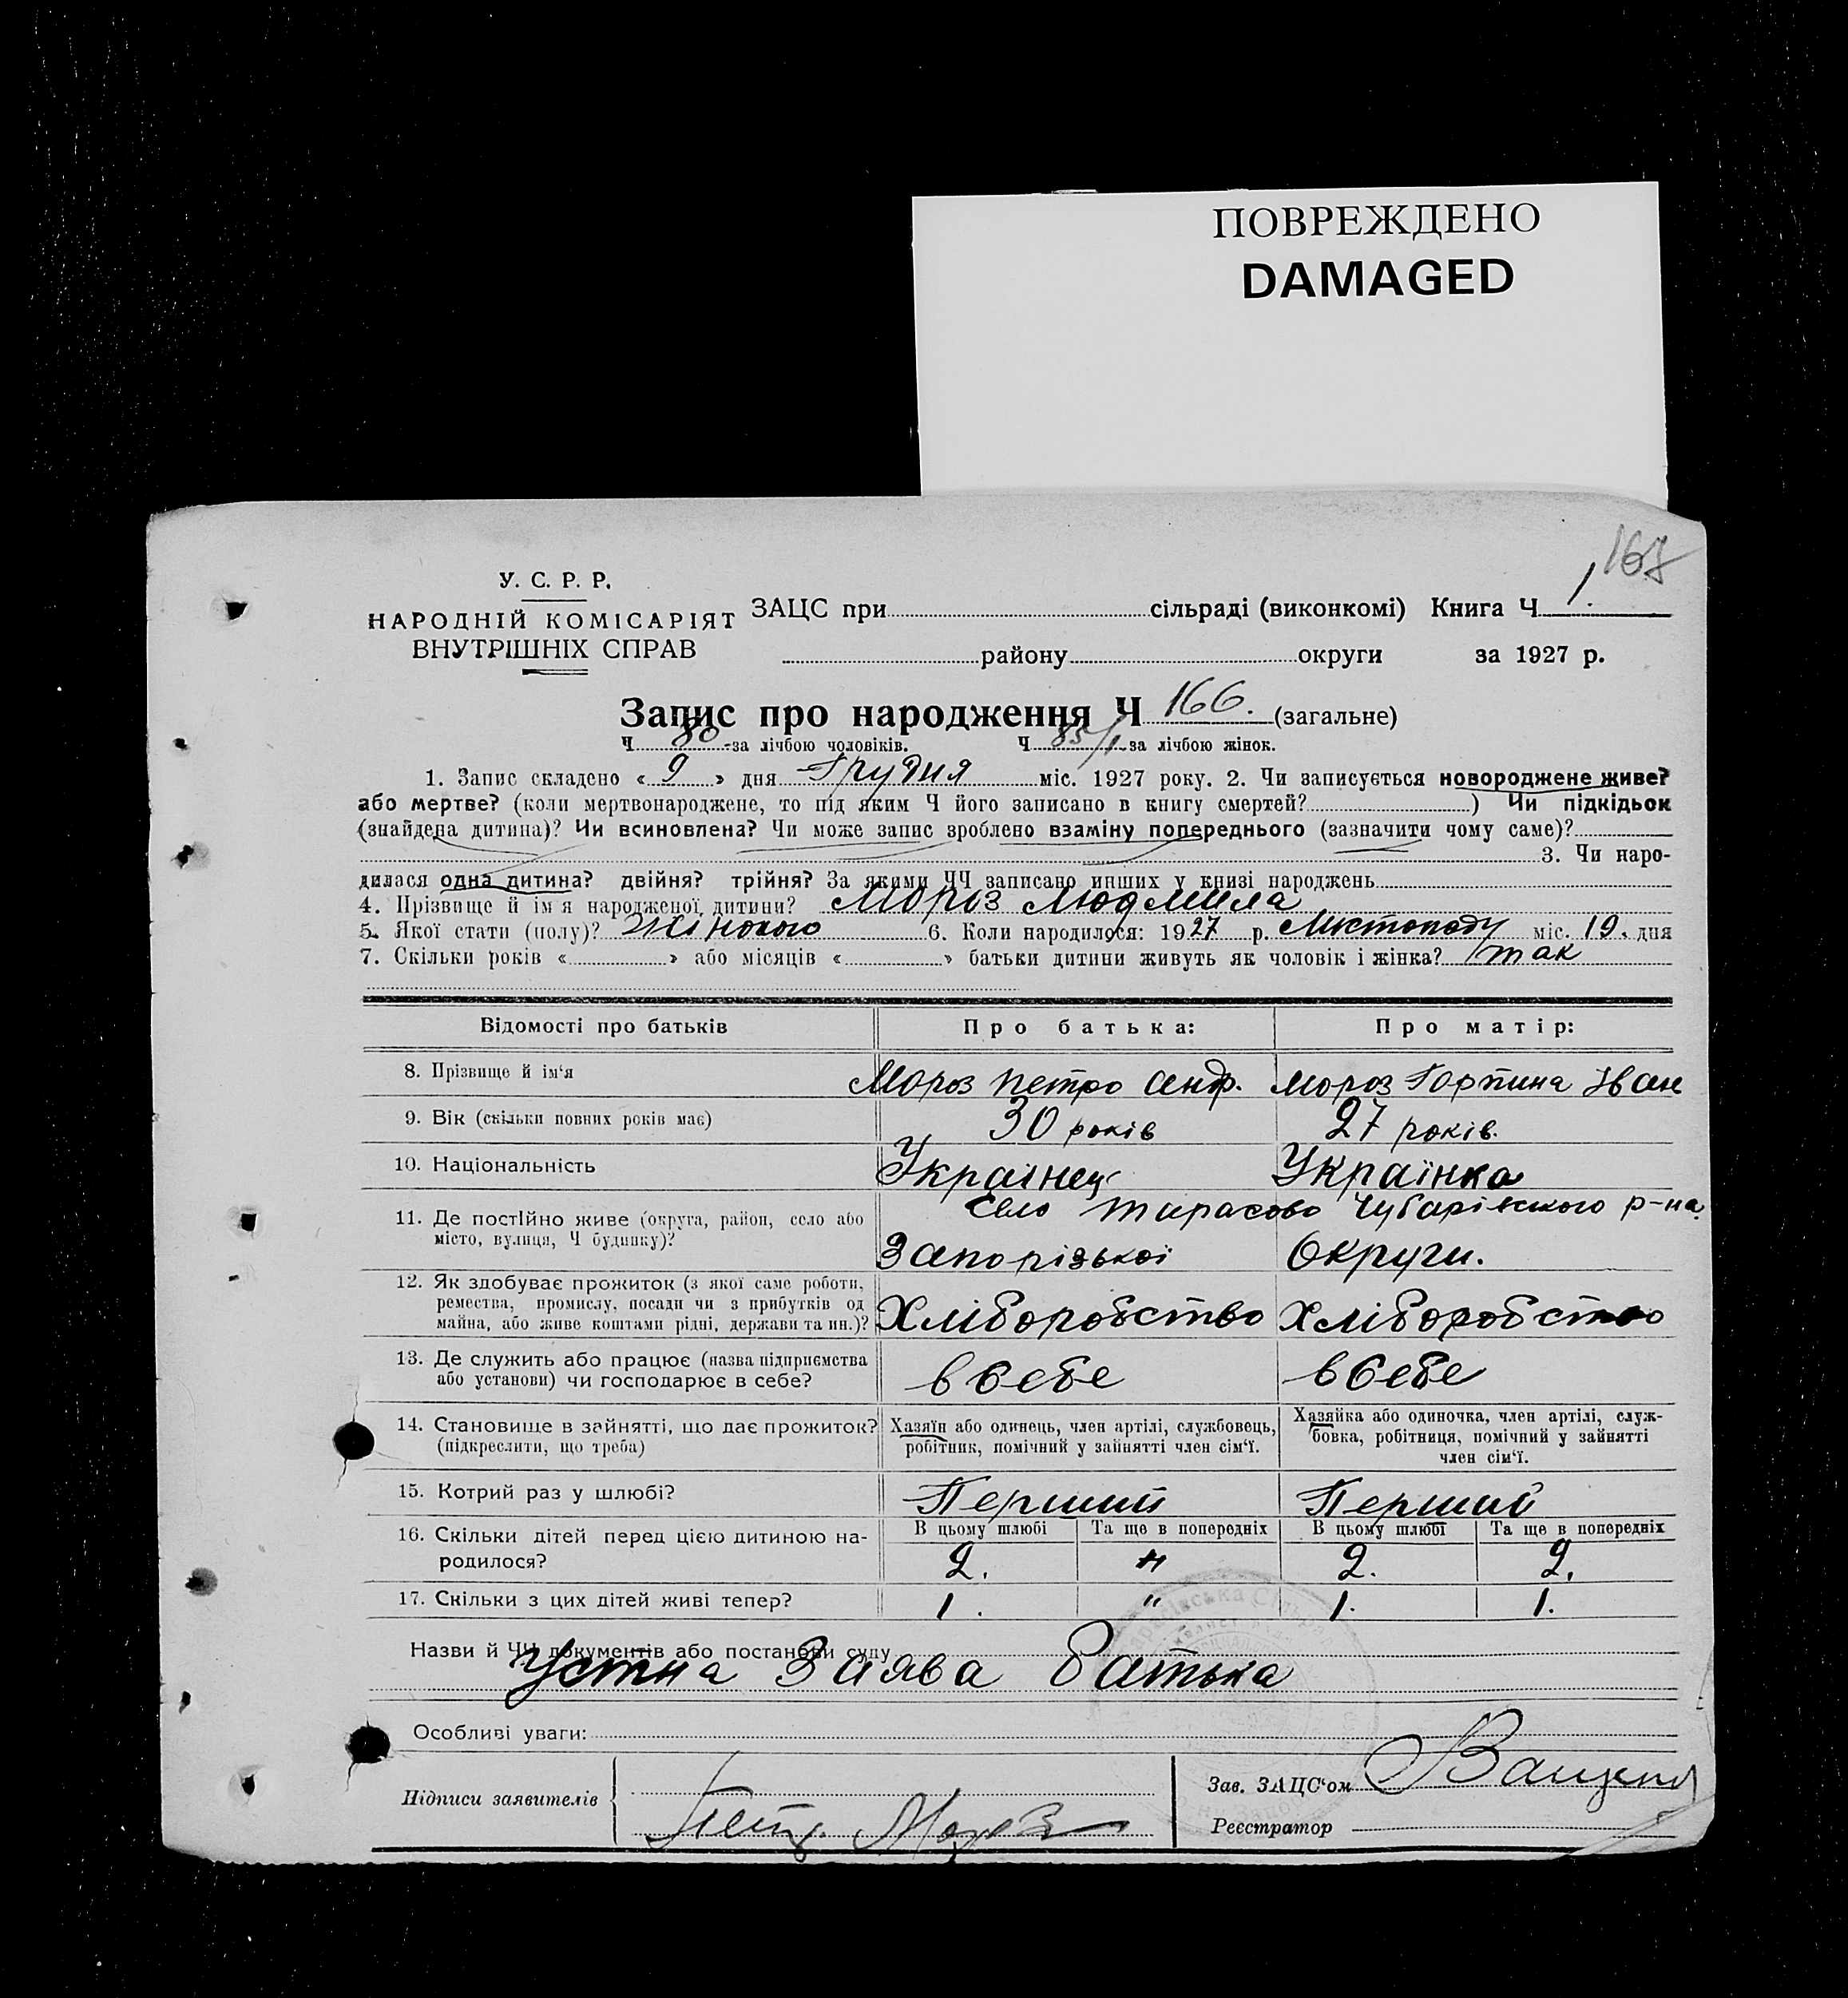 ПОВРЕЖДЕНО
DAMAGED
167
У. С. Р. Р.
НАРОДНІЙ КОМІСАРІЯТ
ВНУТРІШНІХ СПРАВ
ЗАЦС при сільраді (виконкомі) Книга Ч 1.
району округи за 1927 р.
Запис про народження Ч 166. (загальне)
Ч 80 за лічбою чоловіків. Ч 85/1 за лічбою жінок.
1. Запис складено « 9 » дня Грудня міс. 1927 року. 2. Чи записується новороджене живе?
або мертве? (коли мертвонароджене, то під яким Ч його записано в книгу смертей? ) Чи підкідьок
(знайдена дитина)? Чи всиновлена? Чи може запис зроблено взаміну попереднього (зазначити чому саме)?
3. Чи наро-
дилася одна дитина? двійня? трійня? За якими ЧЧ записано инших у книзі народжень
4. Прізвище й ім'я народженої дитини? Мороз Людмила
5. Якої стати (полу)? Жіночого 6. Коли народилося: 1927 р. Листопаду міс. 19. дня
7. Скільки років « » або місяців « » батьки дитини живуть як чоловік і жінка? так
Відомості про батьків Про батька: Про матір:
8. Прізвище й ім'я Мороз Петро Анф. Мороз Горпина Іван
9. Вік (скільки повних років має) 30 років 27 років.
10. Національність Українец Українка
11. Де постійно живе (округа, район, село або
місто, вулиця, Ч будинку)?
Село Тарасово Чубарівського р-на
Запорізької Округи.
12. Як здобуває прожиток (з якої саме роботи,
ремества, промислу, посади чи з прибутків од
майна, або живе коштами рідні, держави та ин.)?
Хліборобство Хліборобство
13. Де служить або працює (назва підприємства
або установи) чи господарює в себе?
в себе в себе
14. Становище в зайнятті, що дає прожиток?
(підкреслити, що треба)
Хазяїн або одинець, член артілі, службовець,
робітник, помічний у зайнятті член сім'ї.
Хазяйка або одиночка, член артілі, служ-
бовка, робітниця, помічний у зайнятті
член сім'ї.
15. Котрий раз у шлюбі? Перший Перший
16. Скільки дітей перед цією дитиною на-
родилося?
В цьому шлюбі Та ще в попередніх В цьому шлюбі Та ще в попередніх
2. " 2. 2.
17. Скільки з цих дітей живі тепер? 1. " 1. 1.
Назви й ЧЧ документів або постанови суду
Устна Заява батька
Особливі уваги:
Підписи заявителів
Петр. Мороз
Зав. ЗАЦС'ом
Реєстратор